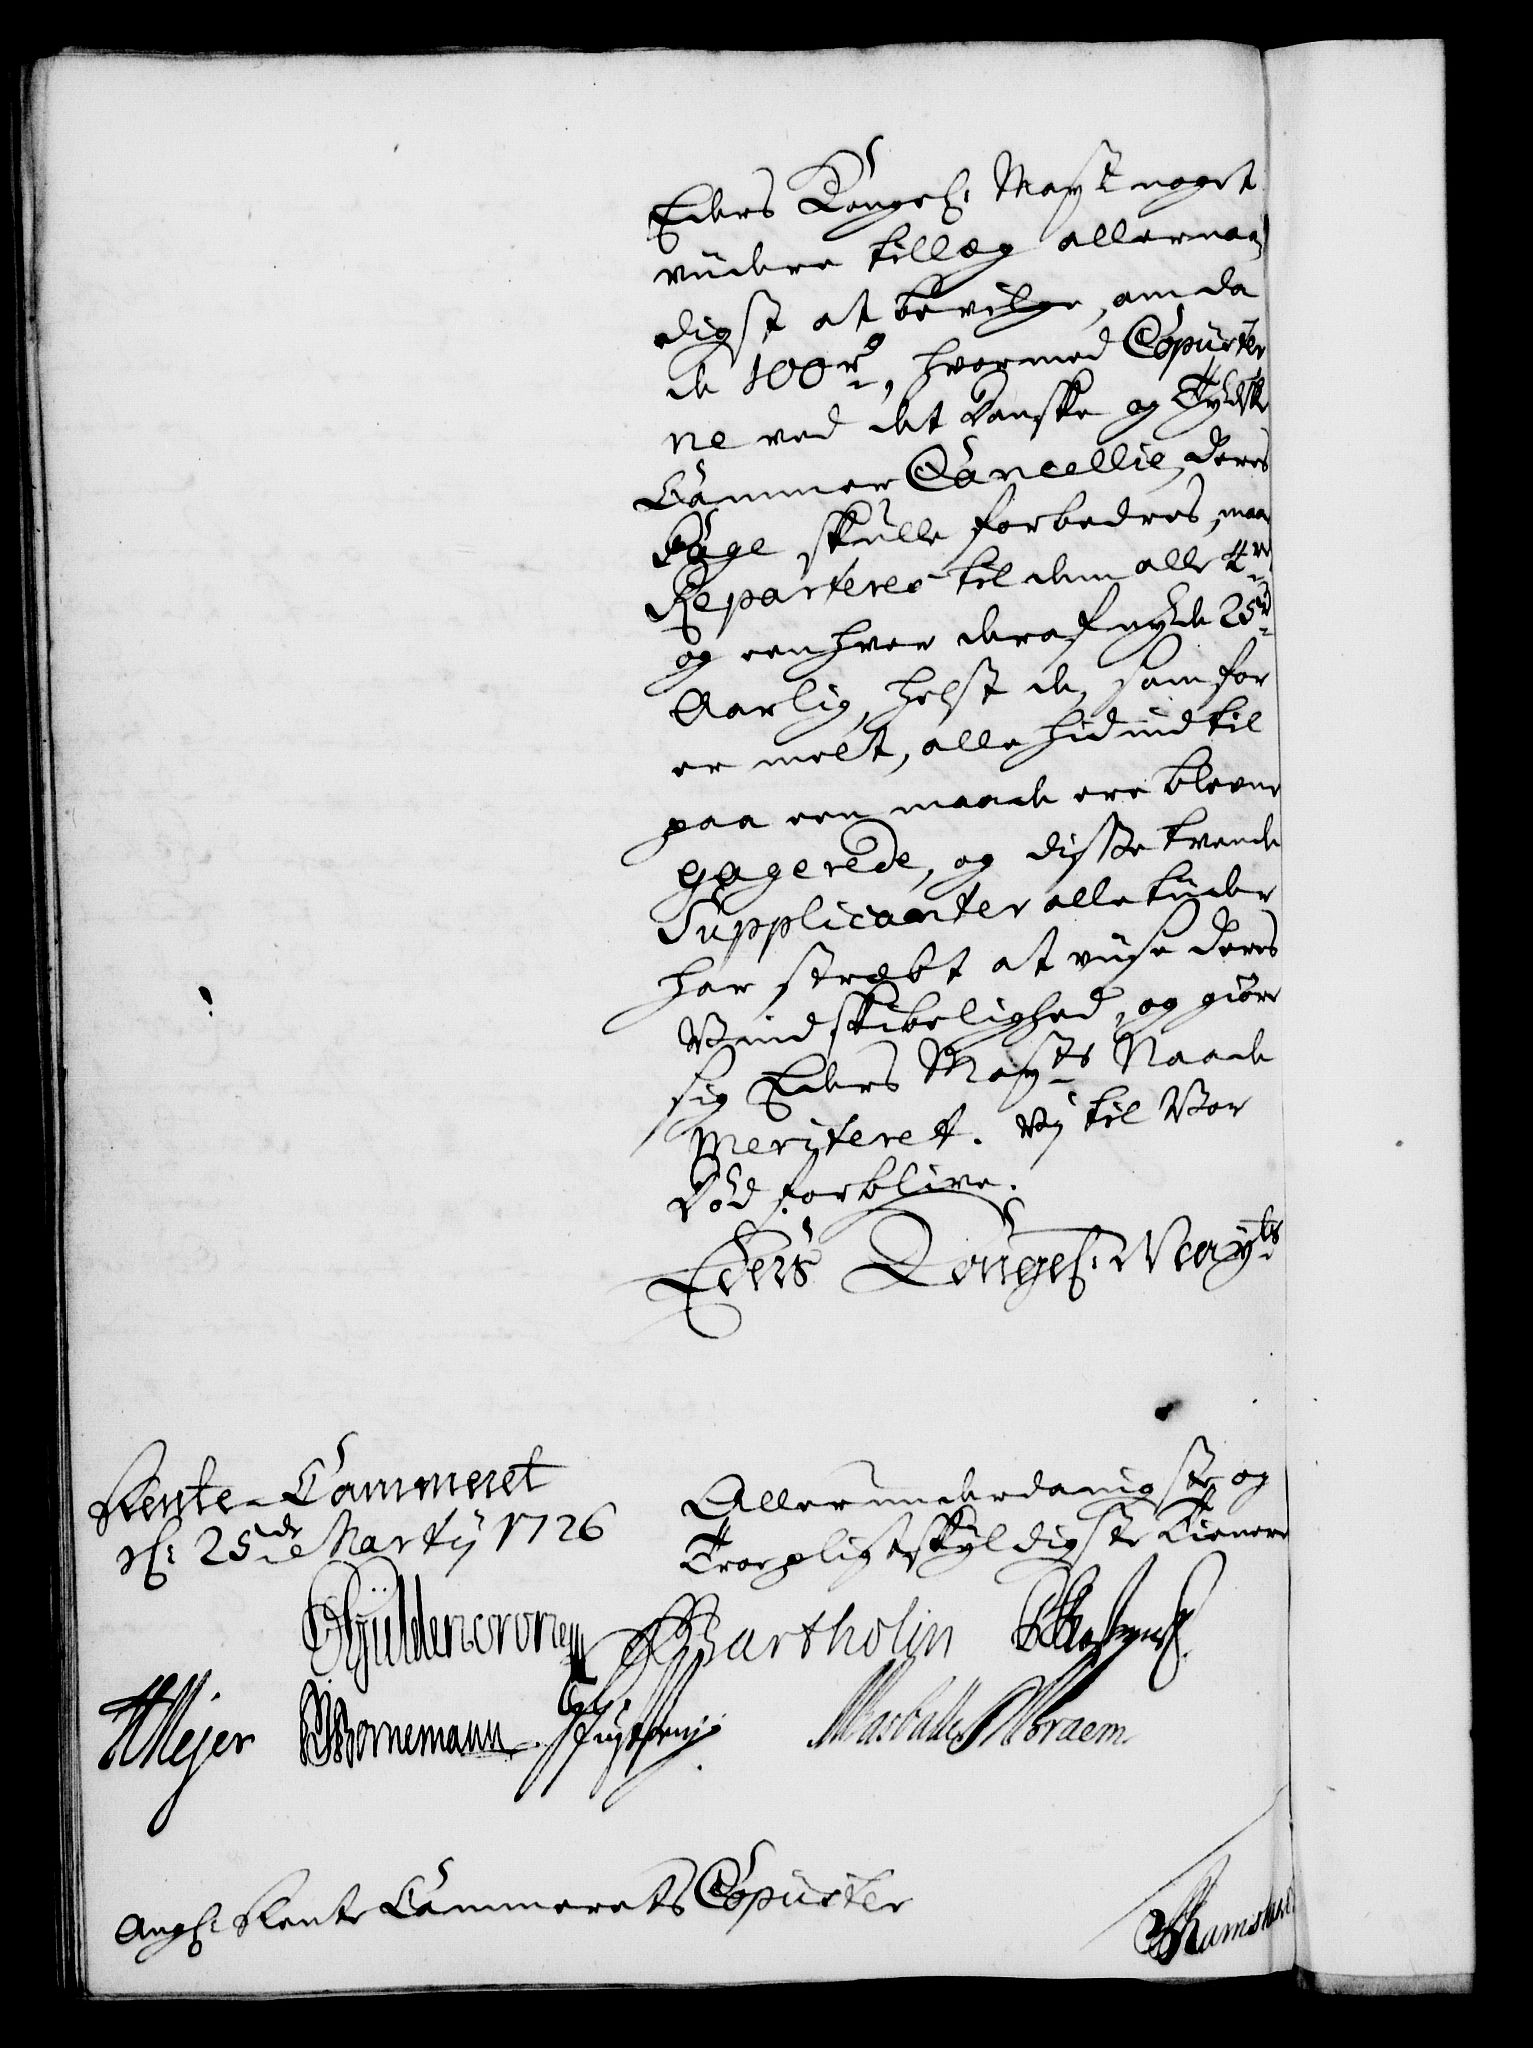 Eders Kongel: Mayst noget
viidere tillæg allernaa
digst at bevilge, om da
de 100 rd, hvormed Copiister
ne ved det danske og Tydske
Cammer Cancellie, deres
Gage skulle forbedres, maa
Reparteres til dem alle 4re
og een hver deraf nyde 25 rd
Aarlig, helst de, som for
er melt, alle hid indtil
paa een maade ere blevne
gagerede, og disse tvende
Supplicanter alle tiider
har stræbt at viise deres
Vindskibelighed, og giøre
sig Eders Mayts Naade
meriteret. Vj til Vor
død forblive.
Eders Kongel: Mayts
Rente-Cammeret
d: 25de Martij 1726
Allerunderdanigste og
Troepligtskyldigste Tienere
Gyldencrone
Bartholin
HMejer
Bornemann
Angl: Rente Cammerets Copiister
Ramshart